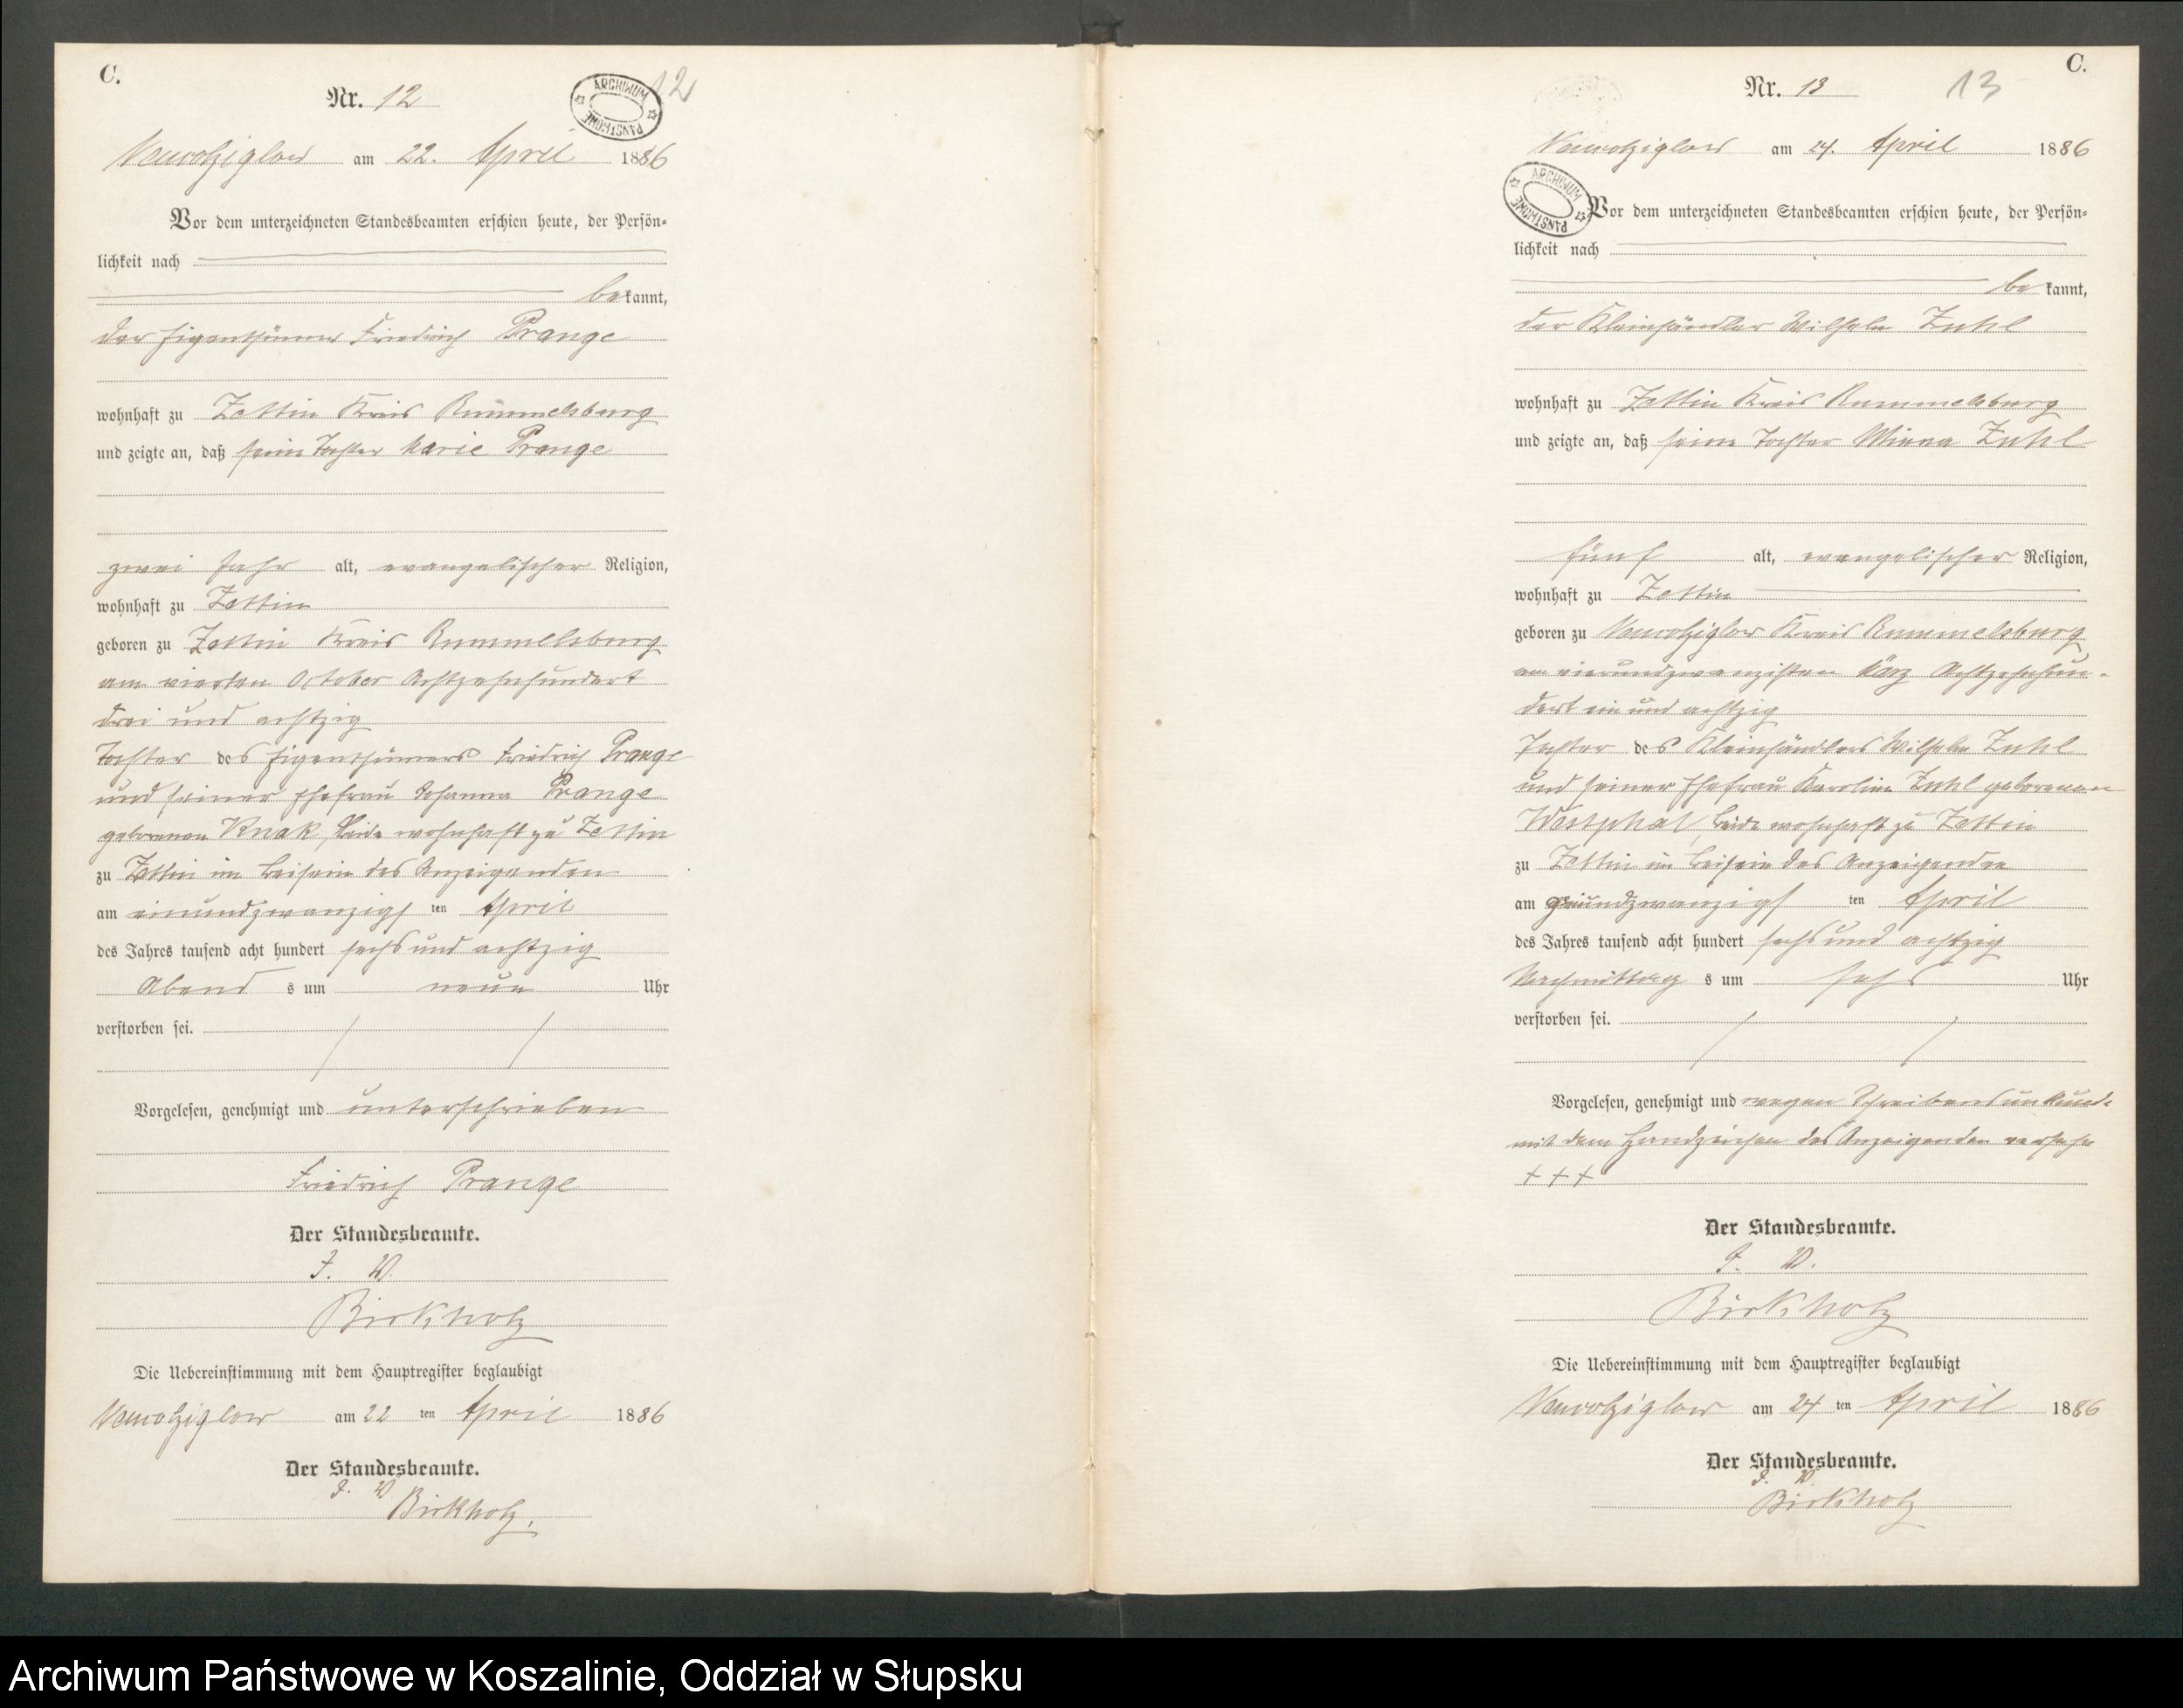 C.
Nr. 12
12
ARCHIWUM PAŃSTWOWE
Neuwolziglow am 22. April 1886
Vor dem unterzeichneten Standesbeamten erschien heute, der Persön-
lichkeit nach
bekannt,
der Eigenthümer Friedrich Prange
wohnhaft zu Zettin Kreis Rummelsburg
und zeigte an, daß seine Tochter Marie Prange
zwei Jahr alt, evangelischer Religion,
wohnhaft zu Zettin
geboren zu Zettin Kreis Rummelsburg
am vierten October Achtzehnhundert
drei und achtzig
Tochter des Eigenthümers Friedrich Prange
und seiner Ehefrau Johanna Prange
geborenen Knak, Beide wohnhaft zu Zettin
zu Zettin im Beisein des Anzeigenden
am einundzwanzigsten April
des Jahres tausend acht hundert sechs und achtzig
Abends um neun Uhr
verstorben sei.
Vorgelesen, genehmigt und unterschrieben
Friedrich Prange
Der Standesbeamte.
J. V.
Birkholz
Die Uebereinstimmung mit dem Hauptregister beglaubigt
Neuwolziglow am 22 ten April 1886
Der Standesbeamte.
J. V. Birkholz.
C.
Nr. 13
13
Neuwolziglow am 24. April 1886
ARCHIWUM PAŃSTWOWE
Vor dem unterzeichneten Standesbeamten erschien heute, der Persön-
lichkeit nach
bekannt,
der Kleinhändler Wilhelm Zuhl
wohnhaft zu Zettin Kreis Rummelsburg
und zeigte an, daß seine Tochter Minna Zuhl
fünf alt, evangelischer Religion,
wohnhaft zu Zettin
geboren zu Neuwolziglow Kreis Rummelsburg
am vierundzwanzigsten März Achtzehnhun-
dert ein und achtzig
Tochter des Kleinhändlers Wilhelm Zuhl
und seiner Ehefrau Karoline Zuhl geborenen
Westphal, Beide wohnhaft zu Zettin
zu Zettin im Beisein des Anzeigenden
am ten April
des Jahres tausend acht hundert sechs und achtzig
Nachmittags um sechs Uhr
verstorben sei.
Vorgelesen, genehmigt und wegen Schreibensunkunde
mit dem Handzeichen des Anzeigenden versehn
+ + +
Der Standesbeamte.
J. V.
Birkholz
Die Uebereinstimmung mit dem Hauptregister beglaubigt
Neuwolziglow am 24 ten April 1886
Der Standesbeamte.
J. V.
Birkholz
Archiwum Państwowe w Koszalinie, Oddział w Słupsku